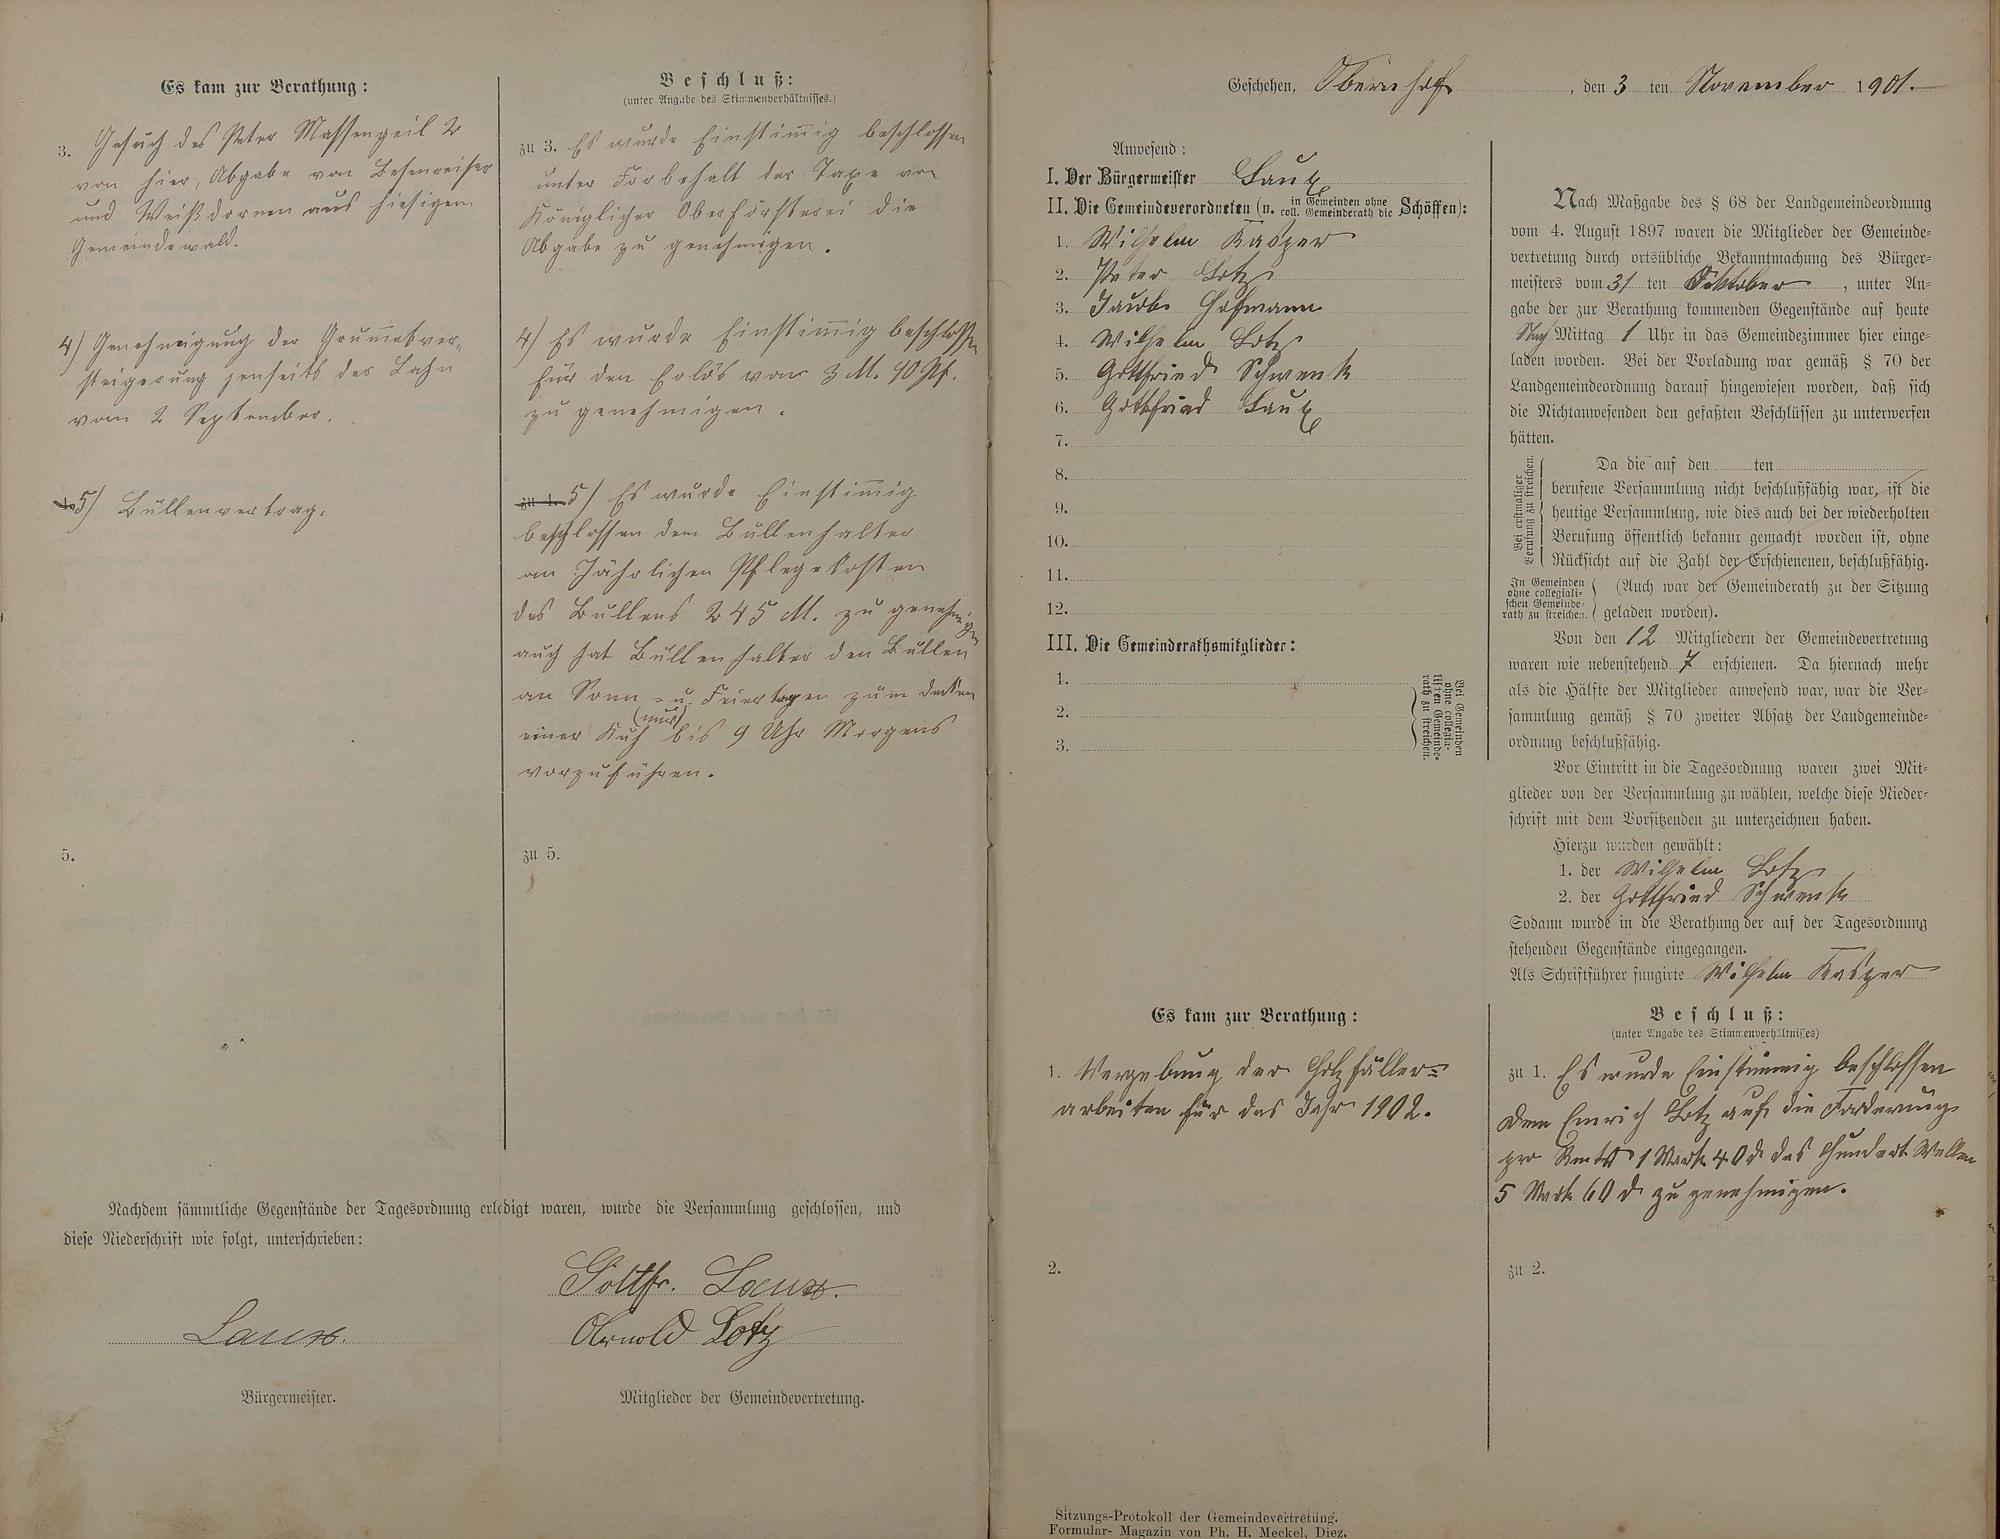 Es kam zur Berathung:
3. Gesuch des Peter Massengeil 2
von hier, Abgabe von Besenreiser
und Weißdornen aus hiesigem
Gemeindewald.
4) Genehmigung der Grum̅etver-
steigerung jenseits der Lahn
vom 2 September.
4. 5) Bullenvertrag.
5.
Beschluß:
(unter Angabe des Stimmenverhältnisses.)
zu 3. Es wurde Einstim̅ig beschlossen
unter Vorbehalt der Taxe von
Königlicher Oberförsterei die
Abgabe zu genehmigen.
4) Es wurde Einstim̅ig beschlossen
für den Erlös von 3 M. 90 Pf.
zu genehmigen.
zu 4. 5) Es wurde Einstim̅ig
beschlossen dem Bullenhalter
an Jährlichen Pflegekosten
des Bullens 245 M. zu genehmigen
auch hat Bullenhalter den Bullen
an Sonn- u. Feiertagen zum decken
einer Kuh (nur) bis 9 Uhr Morgens
vorzuführen.
zu 5.
Nachdem sämmtliche Gegenstände der Tagesordnung erledigt waren, wurde die Versammlung geschlossen, und
diese Niederschrift wie folgt, unterschrieben:
Gottfr. Laux.
Laux.
Arnold Lotz
Bürgermeister.
Mitglieder der Gemeindevertretung.
Geschehen, Obernhof, den 3 ten November 1901.
Anwesend:
I. Der Bürgermeister Laux
II. Die Gemeindeverordneten (u. in Gemeinden ohne coll. Gemeinderath die Schöffen):
1. Wilhelm Kasper
2. Peter Lotz
3. Jacob Hofmann
4. Wilhelm Lotz
5. Gottfried Schwenk
6. Gottfried Laux
7.
8.
9.
10.
11.
12.
III. Die Gemeinderathsmitglieder:
1.
2.
3.
Bei Gemeinden ohne collegialischen Gemeinderath zu streichen.
Nach Maßgabe des § 68 der Landgemeindeordnung
vom 4. August 1897 waren die Mitglieder der Gemeinde-
vertretung durch ortsübliche Bekanntmachung des Bürger-
meisters vom 31 ten Oktober, unter An-
gabe der zur Berathung kommenden Gegenstände auf heute
Nach Mittag 1 Uhr in das Gemeindezimmer hier einge-
laden worden. Bei der Vorladung war gemäß § 70 der
Landgemeindeordnung darauf hingewiesen worden, daß sich
die Nichtanwesenden den gefaßten Beschlüssen zu unterwerfen
hätten.
Bei erstmaliger Berufung zu streichen.
Da die auf den ten
berufene Versammlung nicht beschlußfähig war, ist die
heutige Versammlung, wie dies auch bei der wiederholten
Berufung öffentlich bekannt gemacht worden ist, ohne
Rücksicht auf die Zahl der Erschienenen, beschlußfähig.
In Gemeinden ohne collegialischen Gemeinderath zu streichen.
(Auch war der Gemeinderath zu der Sitzung
geladen worden).
Von den 12 Mitgliedern der Gemeindevertretung
waren wie nebenstehend 7 erschienen. Da hiernach mehr
als die Hälfte der Mitglieder anwesend war, war die Ver-
sammlung gemäß § 70 zweiter Absatz der Landgemeinde-
ordnung beschlußfähig.
Vor Eintritt in die Tagesordnung waren zwei Mit-
glieder von der Versammlung zu wählen, welche diese Nieder-
schrift mit dem Vorsitzenden zu unterzeichnen haben.
Hierzu wurden gewählt:
1. der Wilhelm Lotz
2. der Gottfried Schwenk
Sodann wurde in die Berathung der auf der Tagesordnung
stehenden Gegenstände eingegangen.
Als Schriftführer fungirte Wilhelm Kasper
Es kam zur Berathung:
1. Vergebung der Holzfäller-
arbeiten für das Jahr 1902.
2.
Beschluß:
(unter Angabe des Stimmenverhältnisses)
zu 1. Es wurde Einstimmig beschlossen
dem Emrich Lotz auf die Forderung
pro 1 Mark 40 d das Hundert Wellen
5 Mark 60 d zu genehmigen.
zu 2.
Sitzungs-Protokoll der Gemeindevertretung.
Formular-Magazin von Ph. H. Meckel, Diez.